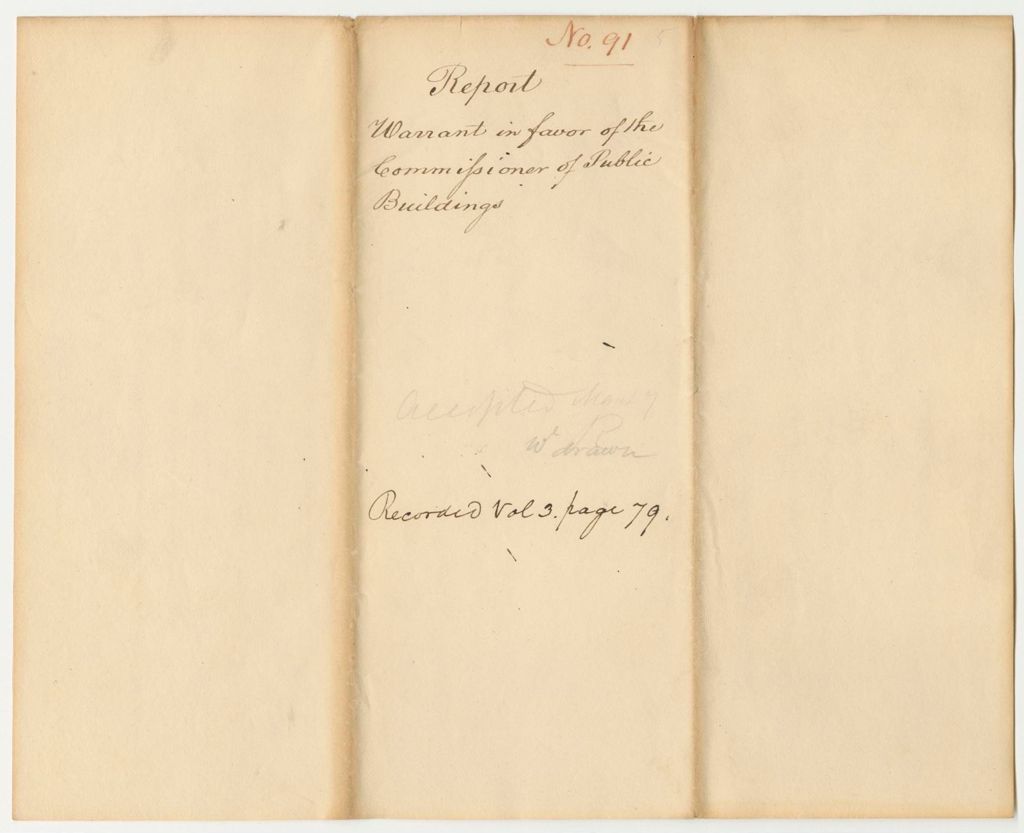 No. 91
Report
Warrant in favor of the
Commissioner of Public
Buildings
Accepted
Wt drawn
Recorded Vol 3. page 79.